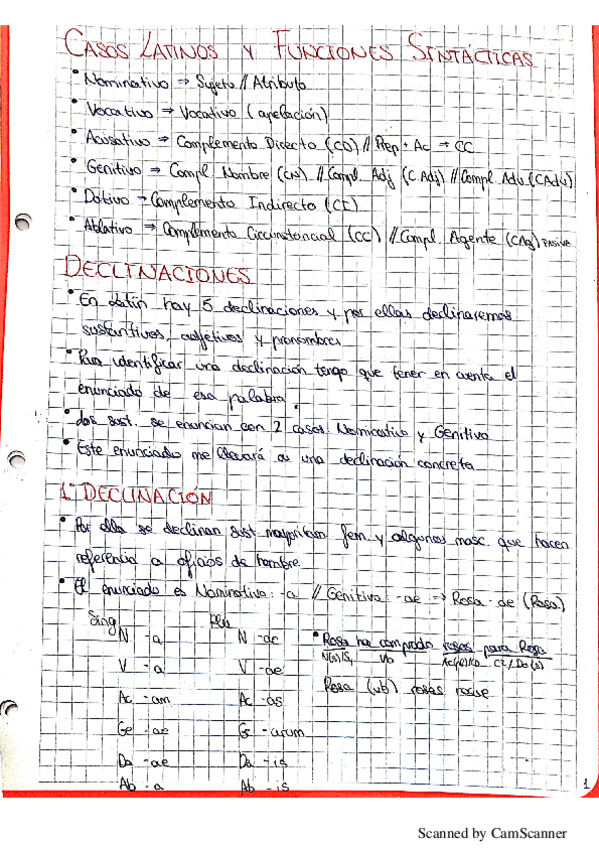 CASOS LATINOS Y FUNCIONES SINTÁCTICAS
• Nominativo ⇒ Sujeto // Atributo
• Vocativo ⇒ Vocativo (apelación)
• Acusativo ⇒ Complemento Directo (CD) // Prep + Ac ⇒ CC
• Genitivo ⇒ Compl Nombre (CN) // Compl. Adj (C Adj) // Compl. Adv (CAdv)
• Dativo → Complemento Indirecto (CI)
• Ablativo ⇒ Complemento Circunstancial (CC) // Compl. Agente (CAg) PASIVA
DECLINACIONES
• En latín hay 5 declinaciones y por ellas declinaremos
sustantivos, adjetivos y pronombres
• Para identificar una declinación tengo que tener en cuenta el
enunciado de esa palabra.
• Los sust. se enuncian con 2 casos: Nominativo y Genitivo
• Este enunciado me llevará a una declinación concreta
1ª DECLINACIÓN
• Por ella se declinan sust mayoritam fem. y algunos masc. que hacen
referencia a oficios de hombre
• El enunciado es Nominativo: -a // Genitivo: -ae → Rosa -ae (Rosa)
Sing Plu
N -a N -ae • Rosa ha comprado rosas para Rosa
N(s)/S Vb Ac(p)/CD CI/Da(s)
V -a V -ae
Rosa (vb) rosas rosae
Ac -am Ac -as
Ge -ae Ge -arum
Da -ae Da -is
Ab -a Ab -is
1
Scanned by CamScanner